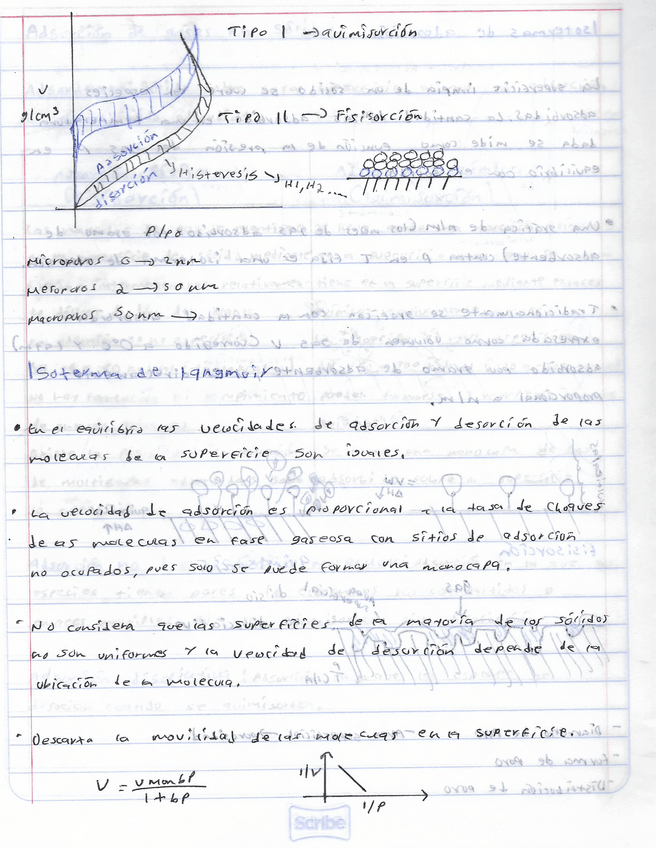 Tipo I → quimisorción
V
g/cm³
Tipo II → Fisisorción
Adsorción
disorción
Histeresis → H1, H2 ....
P/P₀
Microporos 0 → 2 nm
Mesoporos 2 → 50 nm
Macroporos 50nm →
Isoterma de langmuir
• En el equilibrio las velocidades de adsorción y desorción de las
moleculas de la superficie son iguales.
• La velocidad de adsorción es proporcional a la tasa de choques
de as moleculas en fase gaseosa con sitios de adsorción
no ocupados, pues solo se puede formar una monocapa.
- No considera que las superficies de la mayoría de los sólidos
no son uniformes y la velocidad de desorción depende de la
ubicación de a molecula.
• Descarta la movilidad de las moleculas en la superficie.
V = Vmon bP / 1 + bP
1/V
1/P
Scribe